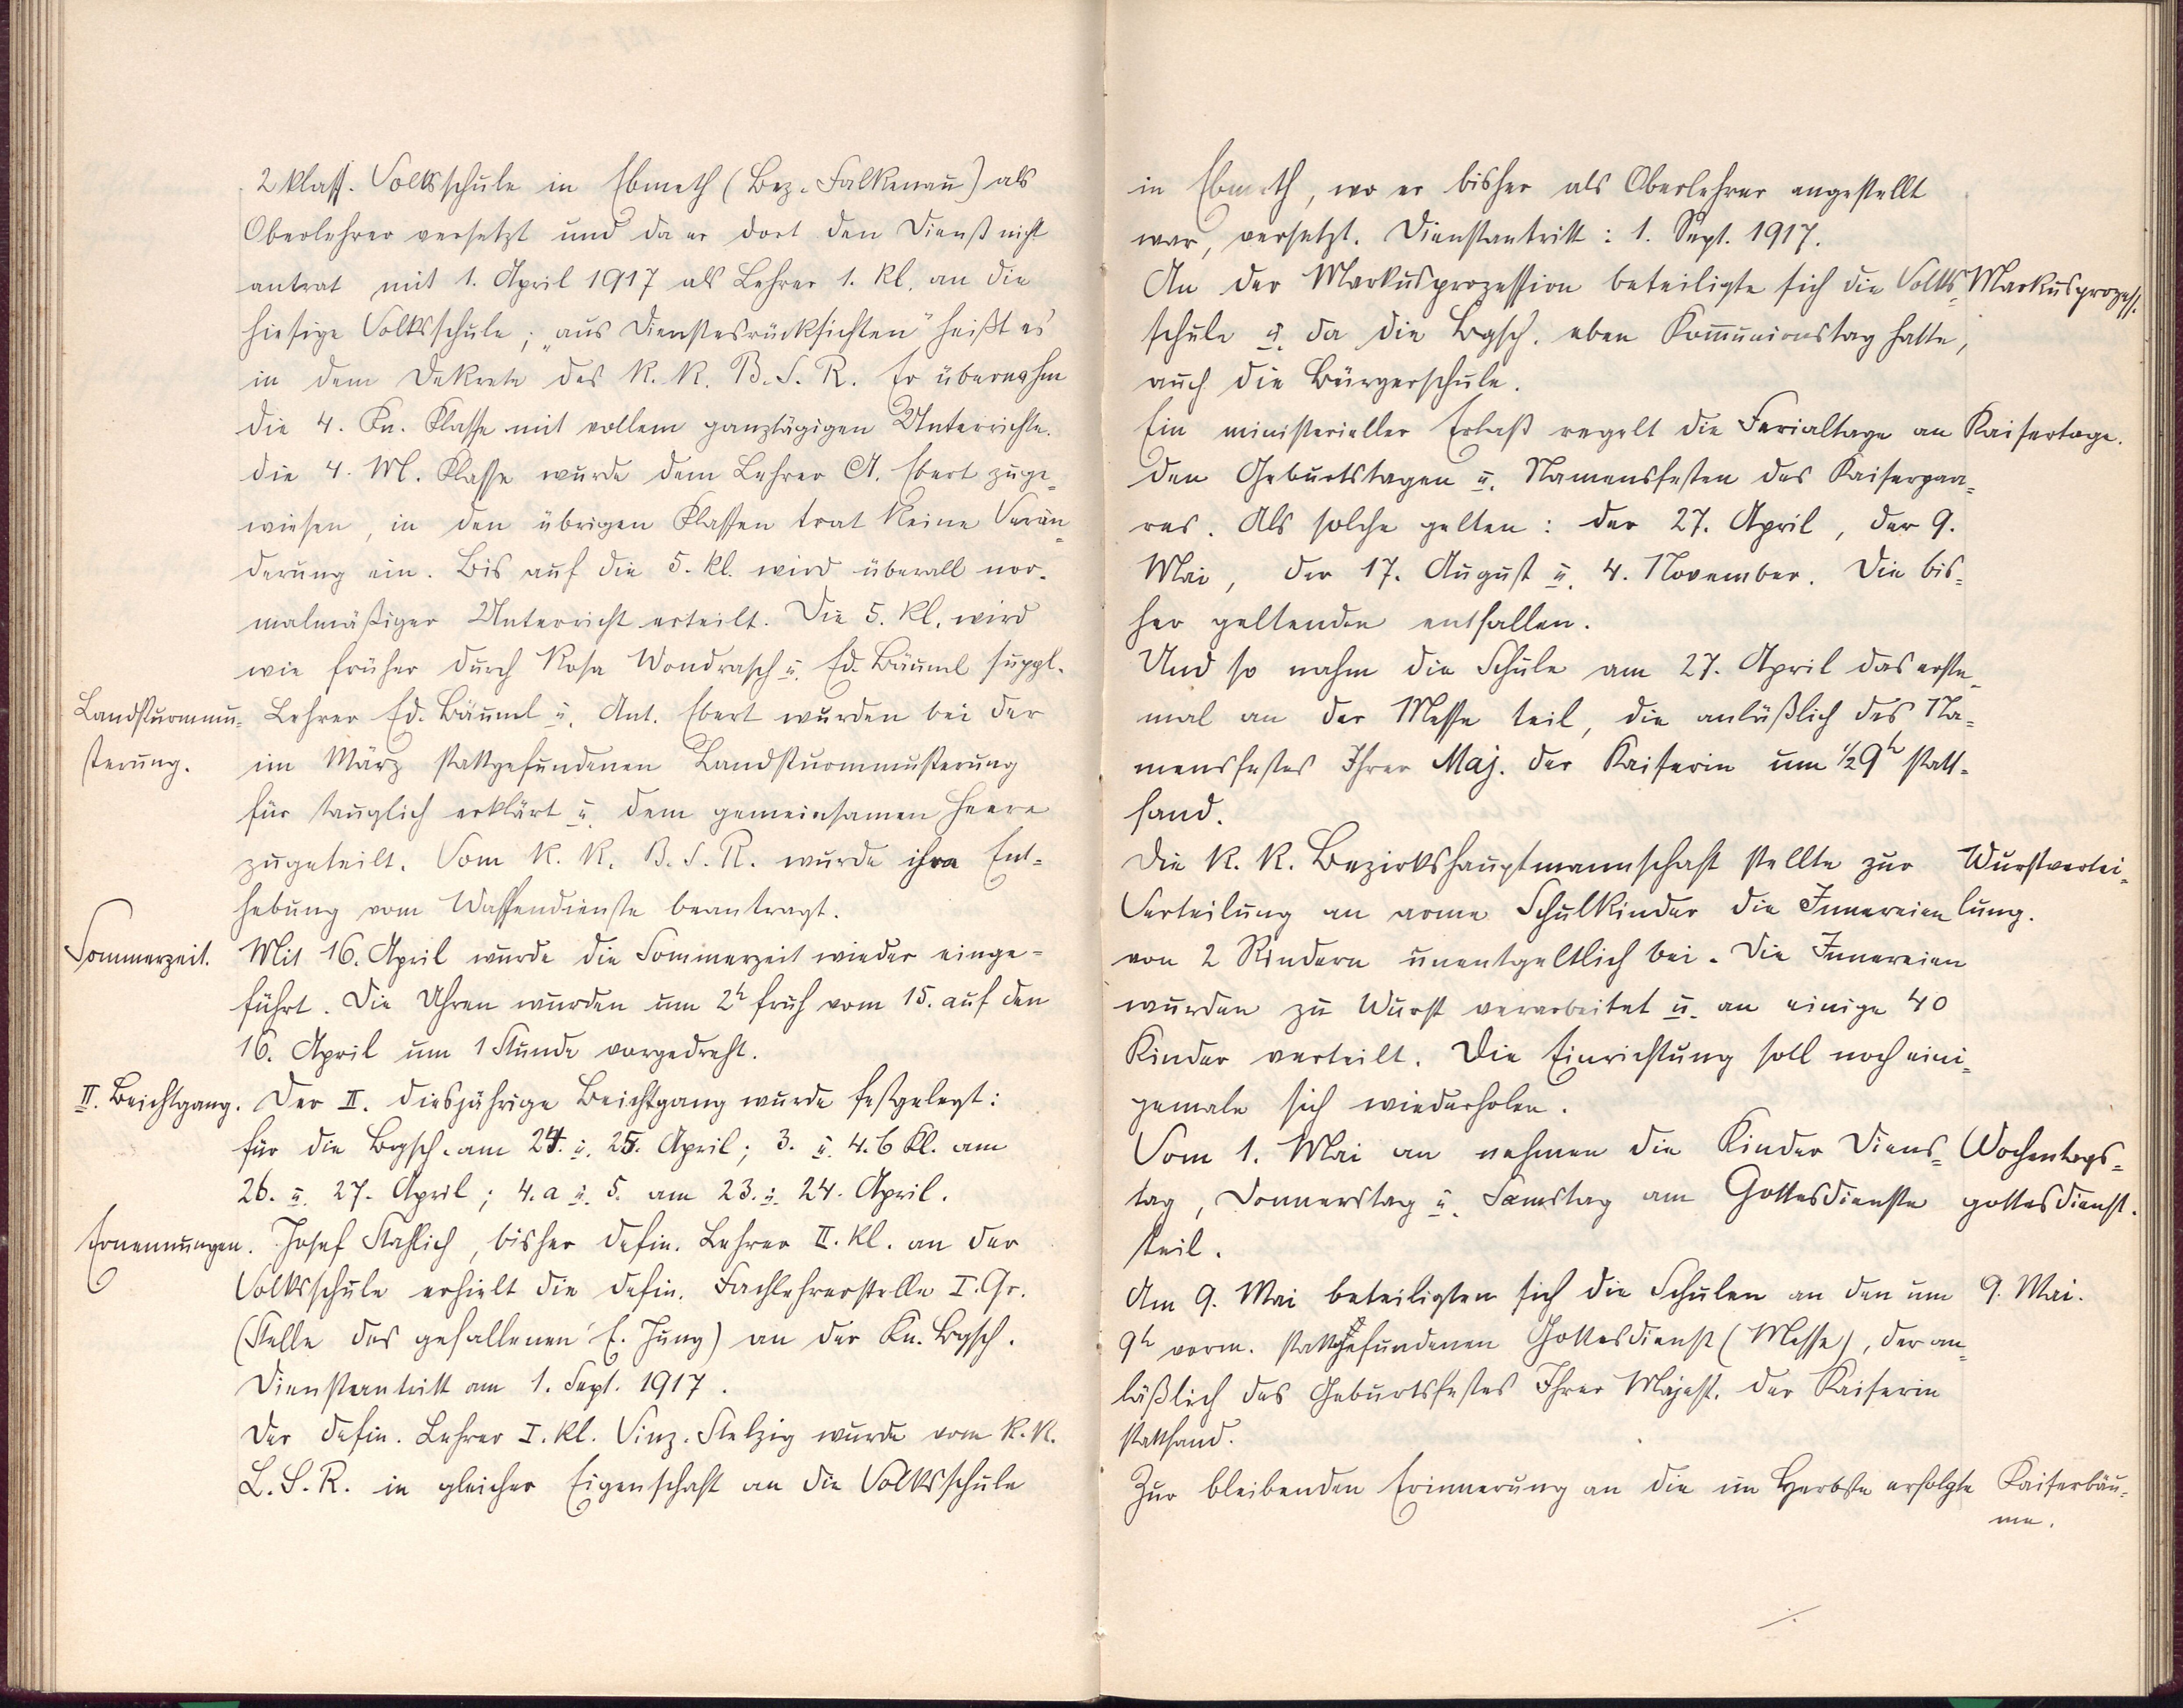 2 klass. Volksschule in Ebmeth (Bez. Falkenau) als
Oberlehrer versetzt und da er dort den Dienst nicht
antrat mit 1. April 1917 als Lehrer 1. Kl. an die
hiesige Volksschule; „aus Dienstesrücksichten" heißt es
in dem Dekrete des K. K. B. S. R. Er übernahm
die 4. Kn. Klasse mit vollem ganztägigen Unterrichte.
die 4. M. Klasse wurde dem Lehrer A. Ebert zuge-
wiesen, in den übrigen Klassen trat keine Verän-
derung ein. Bis auf die 5. Kl. wird überall nor-
malmäßiger Unterricht erteilt. Die 5. Kl. wird
wie früher durch Rosa Wondrasch u. Ed. Bäuml suppl.
Landsturmmu- Lehrer Ed. Bäuml u. Ant. Ebert wurden bei der
sterung. im März stattgefundenen Landsturmmusterung
für tauglich erklärt u. dem gemeinsamen Heere
zugeteilt. Vom K. K. B. S. R. wurde ihre Ent-
hebung vom Waffendienste beantragt.
Sommerzeit. Mit 16. April wurde die Sommerzeit wieder einge-
führt. Die Uhren wurden um 2h früh vom 15. auf den
16. April um 1 Stunde vorgedreht.
II. Beichtgang. Der II. diesjährige Beichtgang wurde festgelegt:
für die Bgsch. am 24. u. 25. April; 3. u. 4. b Kl. am
26. u. 27. April; 4. a u. 5. am 23. u. 24. April.
Ernennungen. Josef Stachlich, bisher defin. Lehrer II. Kl. an der
Volksschule erhielt die defin. Fachlehrerstelle I. Gr.
(Stelle des gefallenen E. Jung) an der Kn. Bgsch.
Dienstantritt am 1. Sept. 1917.
Der defin. Lehrer I. Kl. Vinz. Stelzig wurde vom K. K.
L. S. R. in gleicher Eigenschaft an die Volksschule
in Ebmeth, wo er bisher als Oberlehrer angestellt
war, versetzt. Dienstantritt: 1. Sept. 1917.
An der Markusprozession beteiligte sich die Volks- Markusprozess.
schule u. da die Bgsch. eben Kommunionstag hatte,
auch die Bürgerschule.
Ein ministerieller Erlaß regelt die Ferialtage an Kaisertage.
den Geburtstagen u. Namensfesten des Kaiserpaa-
res. Als solche gelten: der 27. April, der 9.
Mai, der 17. August u. 4. November. Die bis-
her geltenden entfallen.
Und so nahm die Schule am 27. April das erste-
mal an der Messe teil, die anläßlich des Na-
mensfestes Ihrer Maj. der Kaiserin um ½9h statt-
fand.
Die K. K. Bezirkshauptmannschaft stellte zur Wurstvertei-
Verteilung an arme Schulkinder die Innereien lung.
von 2 Rindern unentgeltlich bei. Die Innereien
wurden zu Wurst verarbeitet u. an einige 40
Kinder verteilt. Die Einrichtung soll noch eini-
gemale sich wiederholen.
Vom 1. Mai an nehmen die Kinder Diens- Wochentags-
tag, Donnerstag u. Samstag am Gottesdienste gottesdienst.
teil.
Am 9. Mai beteiligten sich die Schulen an den um 9. Mai.
9h vorm. stattgefundenen Gottesdienst (Messe), der an-
läßlich des Geburtsfestes Ihrer Majest. der Kaiserin
stattfand.
Zur bleibenden Erinnerung an die im Herbste erfolgte Kaiserbäu-
me.